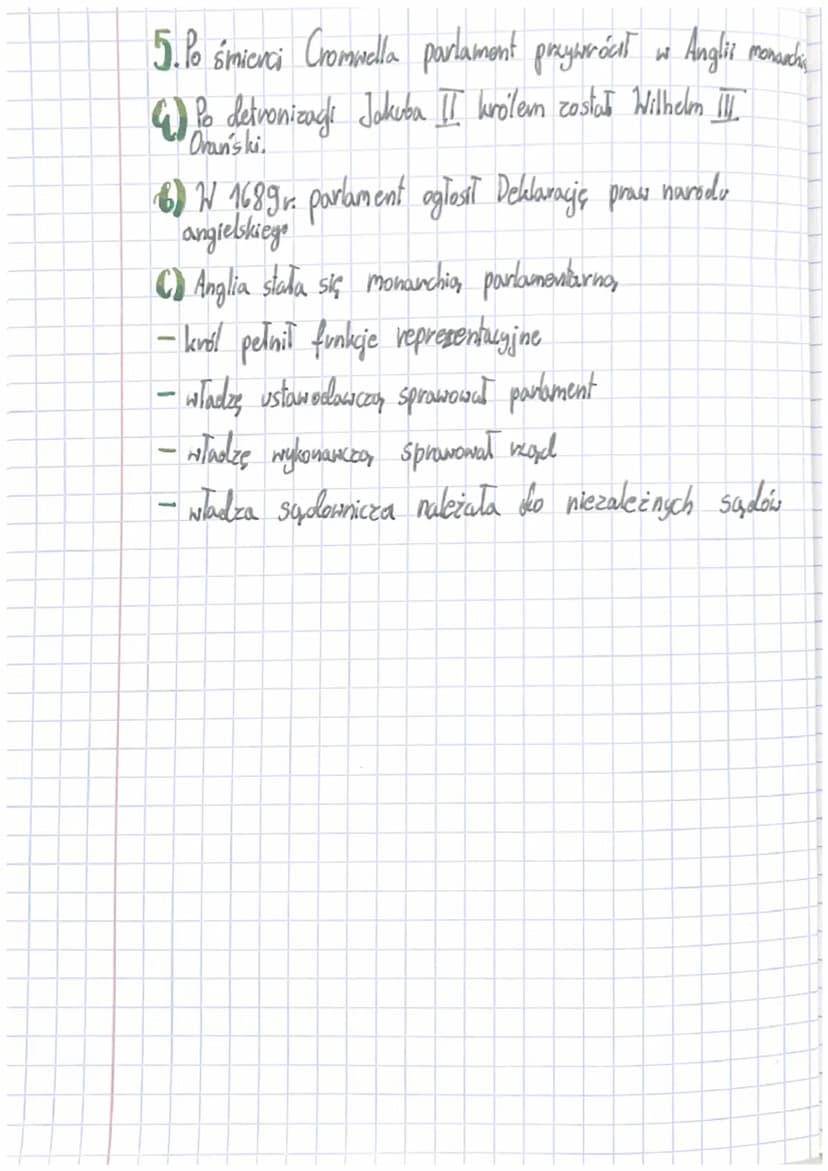 5. Po śmierci Cromwella parlament przywrócił w Anglii monarchię
a) Po detronizacji Jakuba II królem został Wilhelm III
Orański.
b) W 1689r. parlament ogłosił Deklarację praw narodu
angielskiego
c) Anglia stała się monarchią parlamentarną
- król pełnił funkcje reprezentacyjne
- władzę ustawodawczą sprawował parlament
- władzę wykonawczą sprawował rząd
- władza sądownicza należała do niezależnych sądów